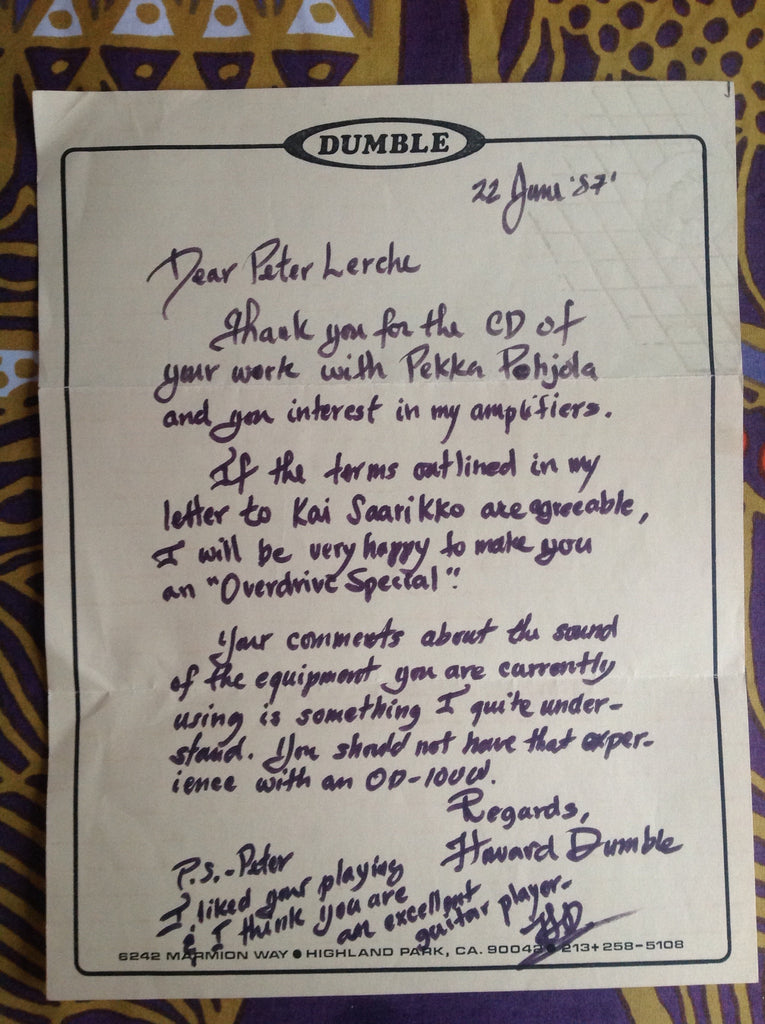 DUMBLE
22 June '87'
Dear Peter Lerche
Thank you for the CD of
your work with Pekka Pohjola
and you interest in my amplifiers.
If the terms outlined in my
letter to Kai Saarikko are agreeable,
I will be very happy to make you
an "Overdrive Special".
Your comments about the sound
of the equipment you are currently
using is something I quite under-
stand. You should not have that exper-
ience with an OD-100W.
Regards,
Howard Dumble
P.S.-Peter
I liked your playing
& I think you are
an excellent
guitar player-
HD
6242 MARMION WAY ● HIGHLAND PARK, CA. 90042 ● 213+258-5108